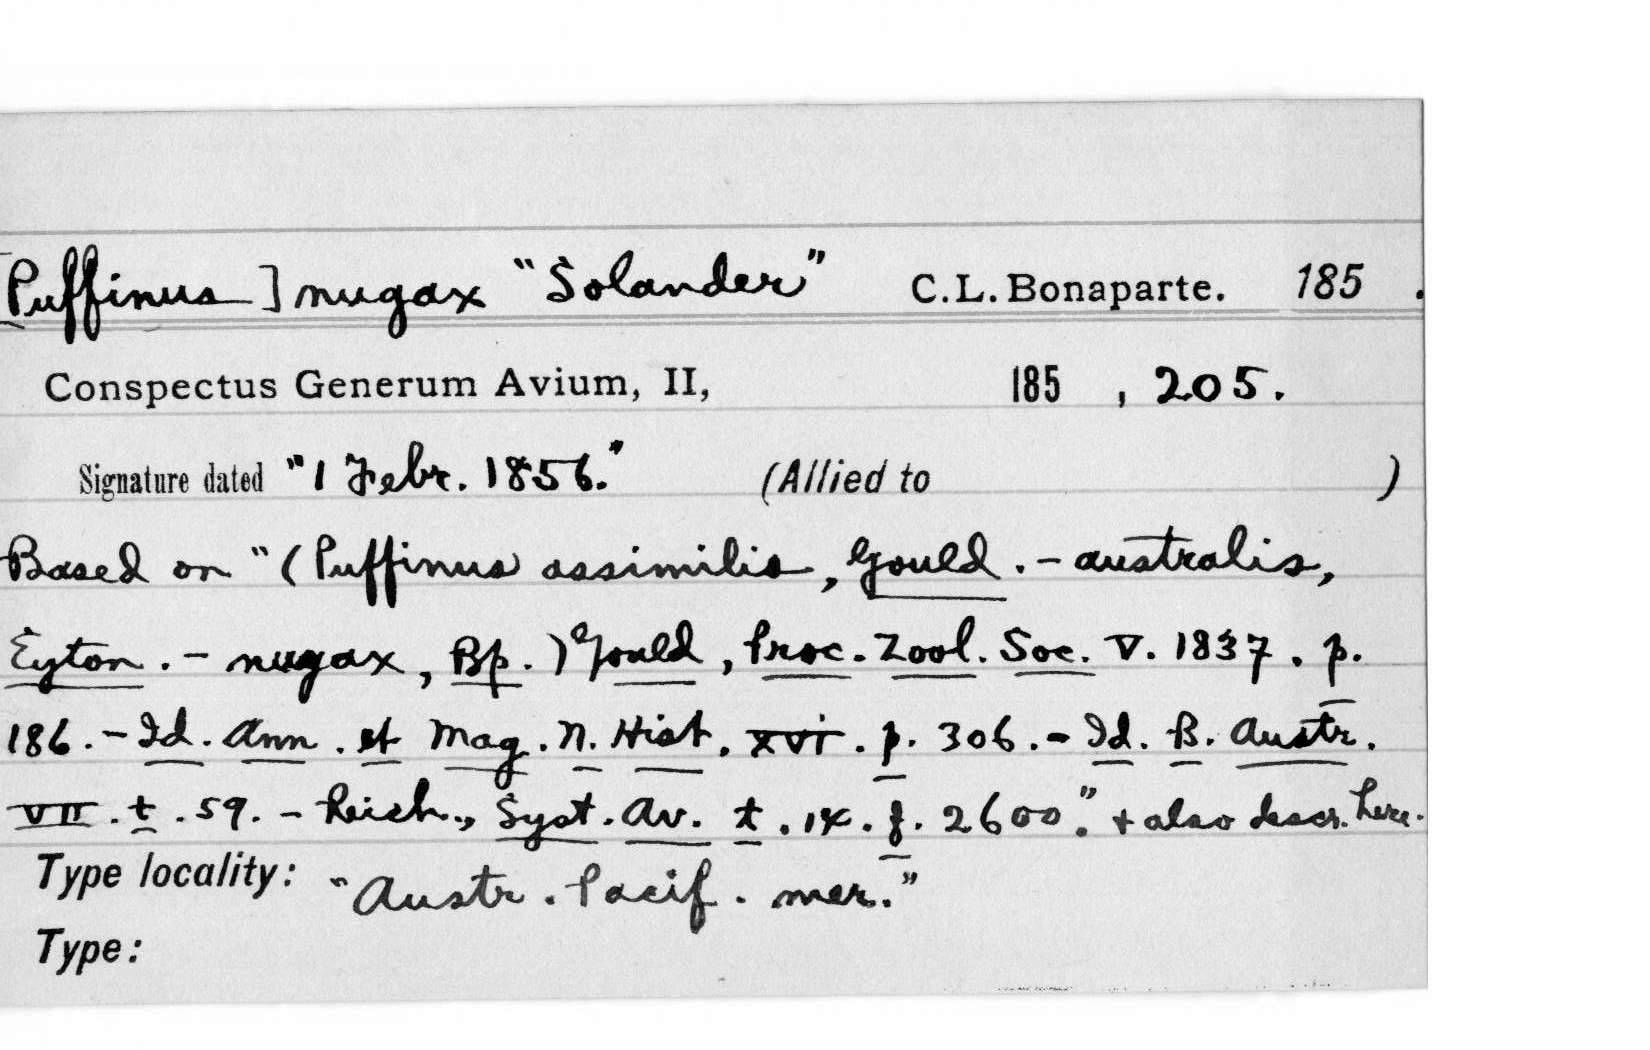 [Puffinus] nugax "Solander" C.L. Bonaparte. 185 .
Conspectus Generum Avium, II, 185 , 205.
Signature dated "1 Febr. 1856." (Allied to )
Based on "(Puffinus assimilis, Gould. - australis,
Eyton. - nugax, Bp.) Gould, Proc. Zool. Soc. V. 1837. p.
186. - Id. Ann. et Mag. N. Hist. XVI. p. 306. - Id. B. Austr.
VII. t. 59. - Reich., Syst. Av. t. 14. f. 2600." + also descr. here.
Type locality: "Austr. Pacif. mer."
Type: